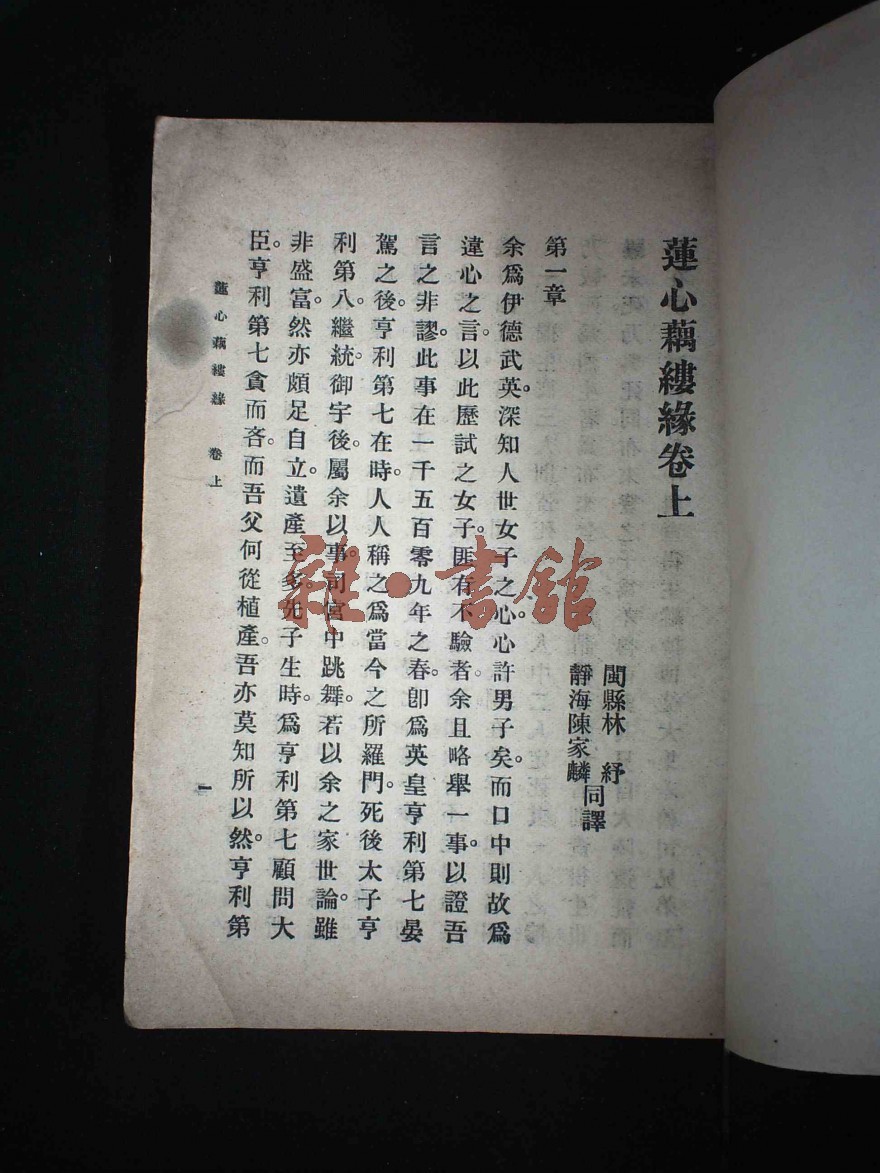 蓮心藕縷緣卷上
閩縣林紓
靜海陳家麟
同譯
第一章
余爲伊德武英。深知人世女子之心。心許男子矣。而口中則故爲
違心之言。以此歷試之女子。匪有不驗者。余且略舉一事。以證吾
言之非謬。此事在一千五百零九年之春。卽爲英皇亨利第七晏
駕之後。亨利第七在時。人人稱之爲當今之所羅門。死後太子亨
利第八。繼統御宇後。屬余以事。司宮中跳舞。若以余之家世論。雖
非盛富。然亦頗足自立。遺產至多。先子生時。爲亨利第七顧問大
臣。亨利第七貪而吝。而吾父何從植產。吾亦莫知所以然。亨利第
蓮心藕縷緣 卷上
一
雜·書館